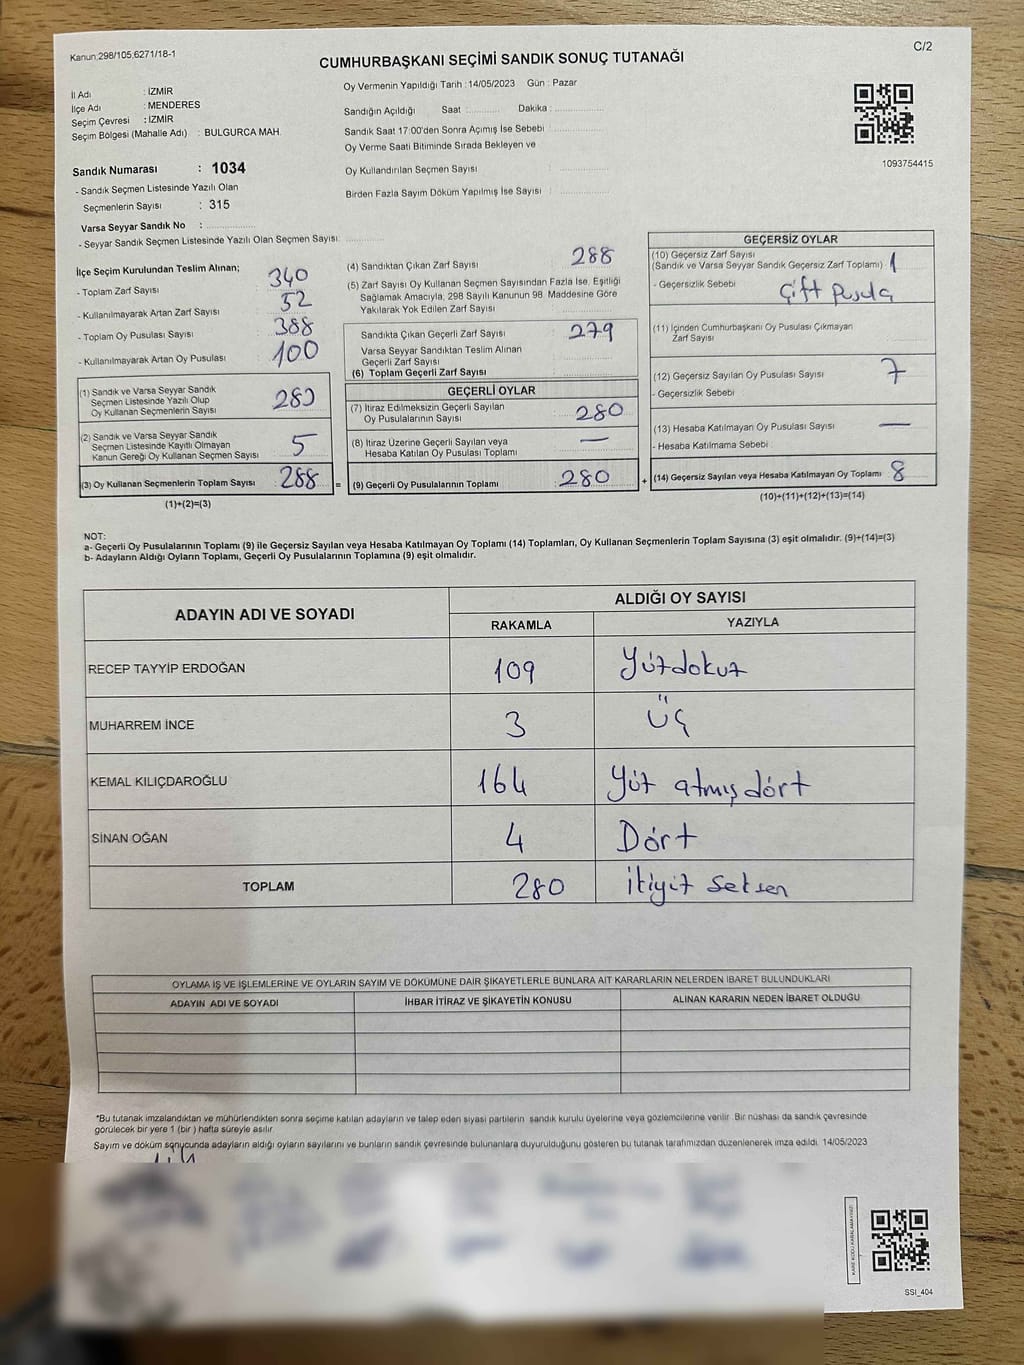 Kanun:298/105,6271/18-1
C/2
CUMHURBAŞKANI SEÇİMİ SANDIK SONUÇ TUTANAĞI
İl Adı : İZMİR
İlçe Adı : MENDERES
Seçim Çevresi : İZMİR
Seçim Bölgesi (Mahalle Adı) : BULGURCA MAH.
Sandık Numarası : 1034
- Sandık Seçmen Listesinde Yazılı Olan
Seçmenlerin Sayısı : 315
Varsa Seyyar Sandık No :
- Seyyar Sandık Seçmen Listesinde Yazılı Olan Seçmen Sayısı:
Oy Vermenin Yapıldığı Tarih :14/05/2023 Gün : Pazar
Sandığın Açıldığı Saat : Dakika :
Sandık Saat 17:00'den Sonra Açımış İse Sebebi :
Oy Verme Saati Bitiminde Sırada Bekleyen ve
Oy Kullandırılan Seçmen Sayısı :
Birden Fazla Sayım Döküm Yapılmış İse Sayısı :
1093754415
İlçe Seçim Kurulundan Teslim Alınan;
- Toplam Zarf Sayısı 340
- Kullanılmayarak Artan Zarf Sayısı 52
- Toplam Oy Pusulası Sayısı 388
- Kullanılmayarak Artan Oy Pusulası 100
(1) Sandık ve Varsa Seyyar Sandık
Seçmen Listesinde Yazılı Olup
Oy Kullanan Seçmenlerin Sayısı
(2) Sandık ve Varsa Seyyar Sandık
Seçmen Listesinde Kayıtlı Olmayan
Kanun Gereği Oy Kullanan Seçmen Sayısı 5
(3) Oy Kullanan Seçmenlerin Toplam Sayısı 288 =
(1)+(2)=(3)
(4) Sandıktan Çıkan Zarf Sayısı 288
(5) Zarf Sayısı Oy Kullanan Seçmen Sayısından Fazla İse, Eşitliği
Sağlamak Amacıyla, 298 Sayılı Kanunun 98. Maddesine Göre
Yakılarak Yok Edilen Zarf Sayısı
Sandıkta Çıkan Geçerli Zarf Sayısı 279
Varsa Seyyar Sandıktan Teslim Alınan
Geçerli Zarf Sayısı
(6) Toplam Geçerli Zarf Sayısı
GEÇERLİ OYLAR
(7) İtiraz Edilmeksizin Geçerli Sayılan
Oy Pusulalarının Sayısı : 280
(8) İtiraz Üzerine Geçerli Sayılan veya
Hesaba Katılan Oy Pusulası Toplamı : —
(9) Geçerli Oy Pusulalarının Toplamı : 280 +
GEÇERSİZ OYLAR
(10) Geçersiz Zarf Sayısı
(Sandık ve Varsa Seyyar Sandık Geçersiz Zarf Toplamı) 1
- Geçersizlik Sebebi Çift Pusula
(11) İçinden Cumhurbaşkanı Oy Pusulası Çıkmayan
Zarf Sayısı
(12) Geçersiz Sayılan Oy Pusulası Sayısı 7
- Geçersizlik Sebebi
(13) Hesaba Katılmayan Oy Pusulası Sayısı —
- Hesaba Katılmama Sebebi
(14) Geçersiz Sayılan veya Hesaba Katılmayan Oy Toplamı 8
(10)+(11)+(12)+(13)=(14)
NOT:
a- Geçerli Oy Pusulalarının Toplamı (9) ile Geçersiz Sayılan veya Hesaba Katılmayan Oy Toplamı (14) Toplamları, Oy Kullanan Seçmenlerin Toplam Sayısına (3) eşit olmalıdır. (9)+(14)=(3)
b- Adayların Aldığı Oyların Toplamı, Geçerli Oy Pusulalarının Toplamına (9) eşit olmalıdır.
ADAYIN ADI VE SOYADI
ALDIĞI OY SAYISI
RAKAMLA YAZIYLA
RECEP TAYYİP ERDOĞAN 109 Yüzdokuz
MUHARREM İNCE 3 Üç
KEMAL KILIÇDAROĞLU 164 Yüz atmış dört
SİNAN OĞAN 4 Dört
TOPLAM 280 ikiyüz seksen
OYLAMA İŞ VE İŞLEMLERİNE VE OYLARIN SAYIM VE DÖKÜMÜNE DAİR ŞİKAYETLERLE BUNLARA AİT KARARLARIN NELERDEN İBARET BULUNDUKLARI
ADAYIN ADI VE SOYADI İHBAR İTİRAZ VE ŞİKAYETİN KONUSU ALINAN KARARIN NEDEN İBARET OLDUĞU
*Bu tutanak imzalandıktan ve mühürlendikten sonra seçime katılan adayların ve talep eden siyasi partilerin sandık kurulu üyelerine veya gözlemcilerine verilir. Bir nüshası da sandık çevresinde
görülecek bir yere 1 (bir ) hafta süreyle asılır.
Sayım ve döküm sonucunda adayların aldığı oyların sayılarını ve bunların sandık çevresinde bulunanlara duyurulduğunu gösteren bu tutanak tarafımızdan düzenlenerek imza edildi. 14/05/2023
KARE KODU KARALAMAYINIZ!
SSİ_404